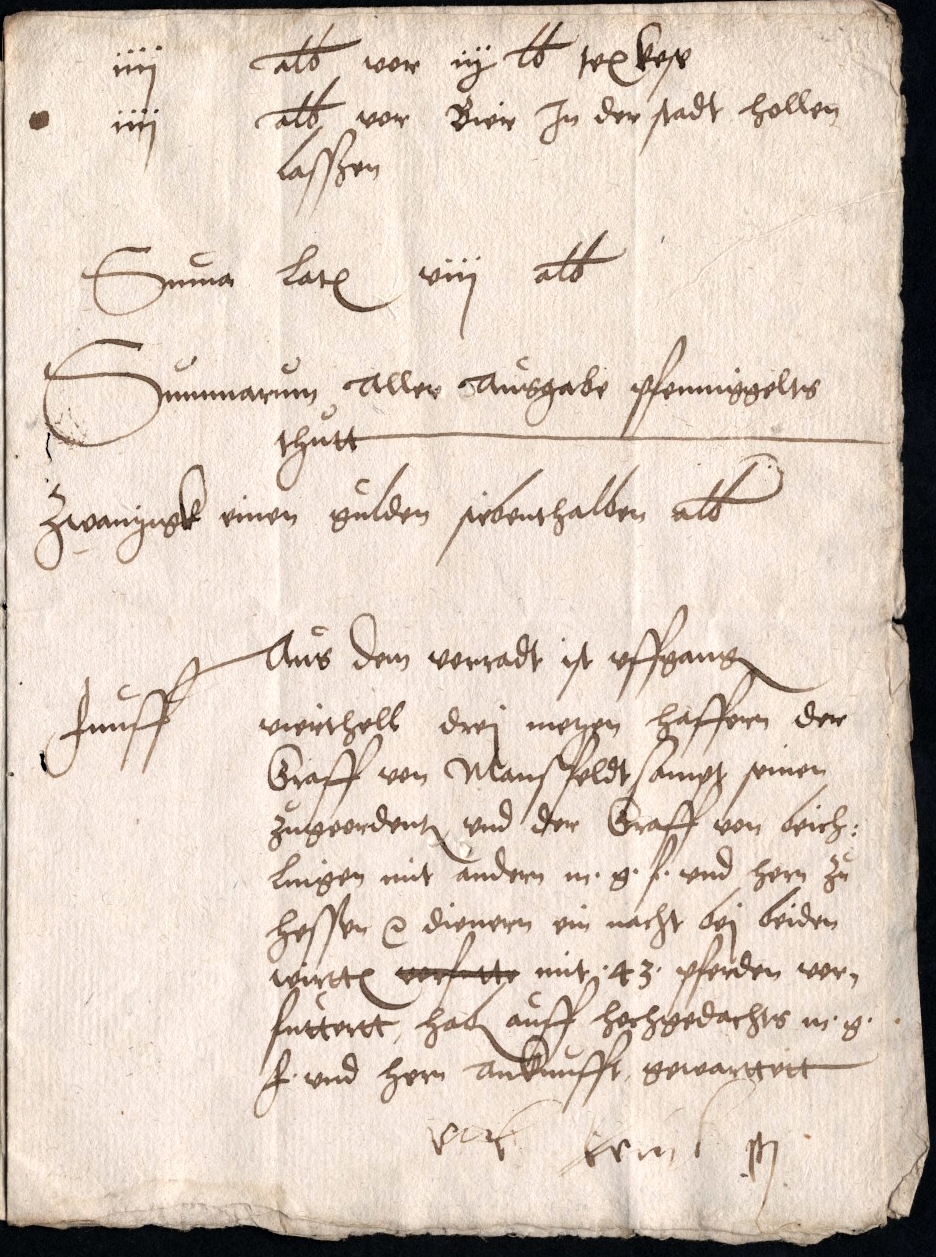 iiij alb vor iij lb keße
iiij alb vor Bier In der stadt hollen
lasszen
Suma Lat[is] viij alb
Summarum Aller Ausgabe pfenniggelts
thutt
Zwanzigk einen gulden siebenthalben alb
Aus dem vorradt ist uffgang
funff vierthell drej metzen haffern der
Graff von Mansffeldt sampt seinen
zugeordent und der Graff von beich:
lingen mit andern m. g. f. und hern zu
hessen dienern ein nacht bej beiden
wirtt verfutte mit .43. pferden ver,
futtertt, hab auff hochgedachts m. g.
f. und hern ankunfft, gewarttett